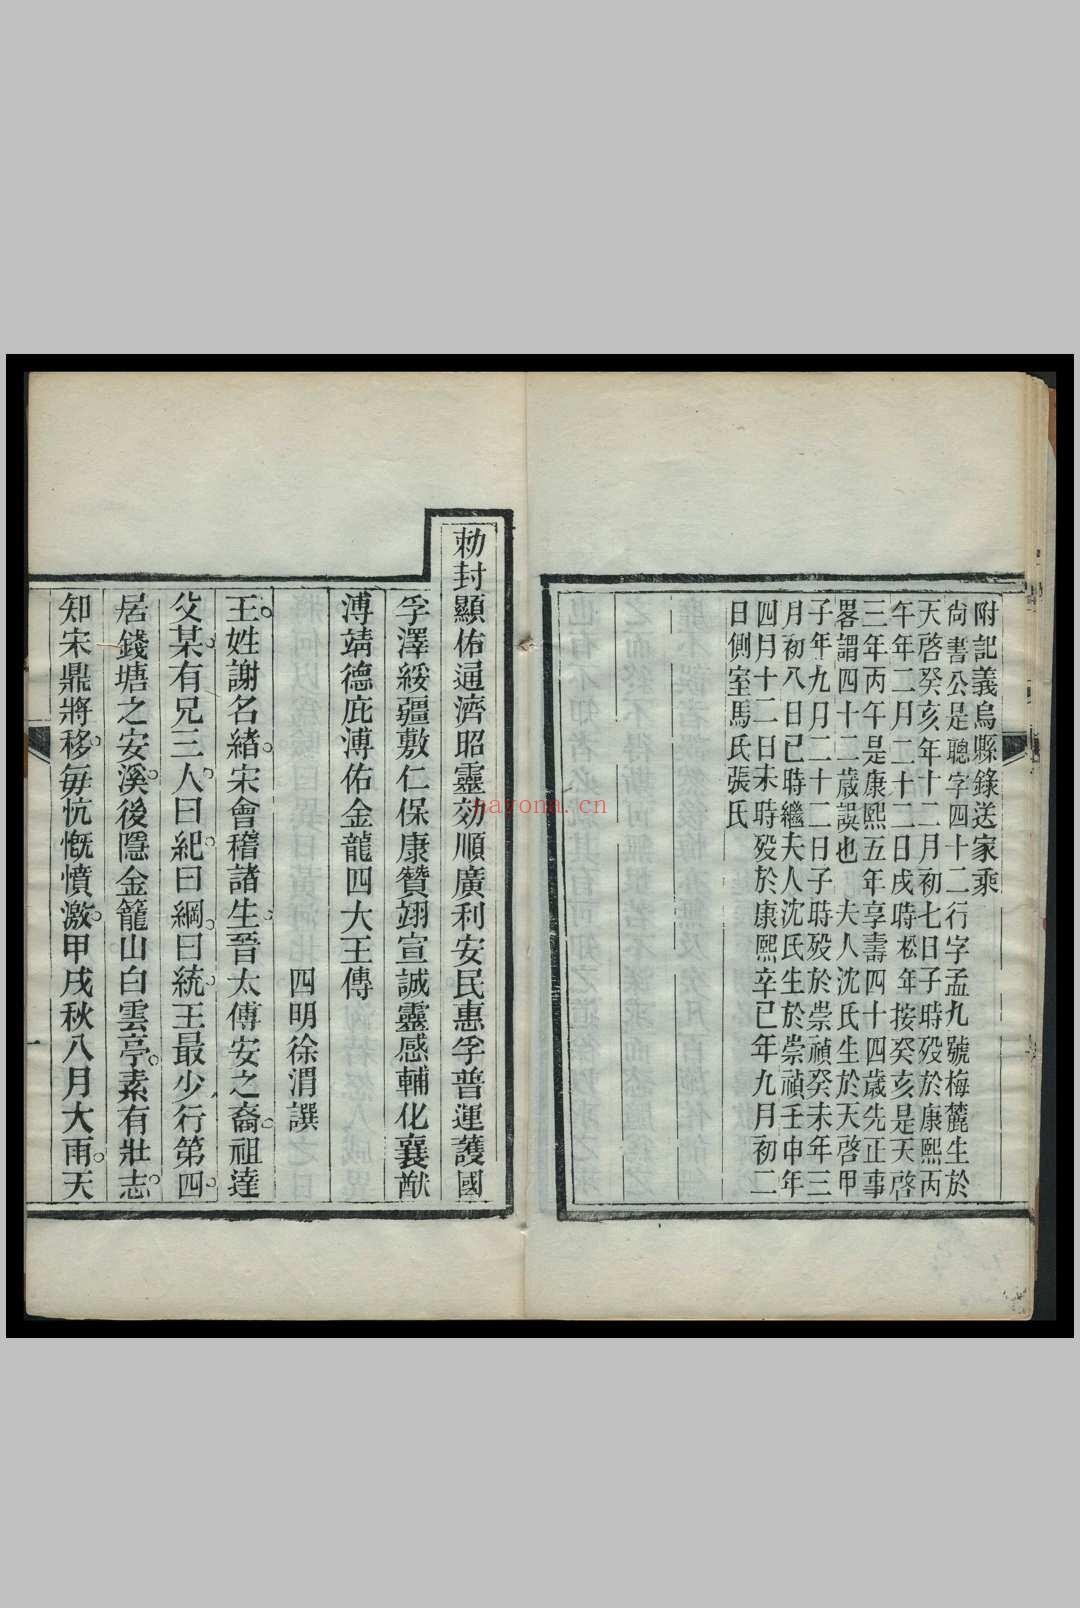 附記義烏縣錄送家乘
尚書公是聰字四十二行字孟九號梅麓生於
天啓癸亥年十二月初七日子時殁於康熙丙
午年二月二十三日戌時松年按癸亥是天啓
三年丙午是康熙五年享壽四十四歳先正事
畧謂四十二歳誤也夫人沈氏生於天啓甲
子年九月二十二日子時殁於崇禎癸未年三
月初八日巳時繼夫人沈氏生於崇禎壬申年
四月十二日未時殁於康熙辛巳年九月初二
日側室馬氏張氏
勅封顯佑通濟昭靈効順廣利安民惠孚普運護國
孚澤綏疆敷仁保康贊翊宣誠靈感輔化襄猷
溥靖德庇溥佑金龍四大王傳
四明徐渭譔
王姓謝名緒宋會稽諸生晉太傅安之裔祖達
父某有兄三人曰紀曰綱曰統王最少行第四
居錢塘之安溪後隱金籠山白雲亭素有壯志
知宋鼎將移每忼慨憤激甲戌秋八月大雨天
nayona.cn